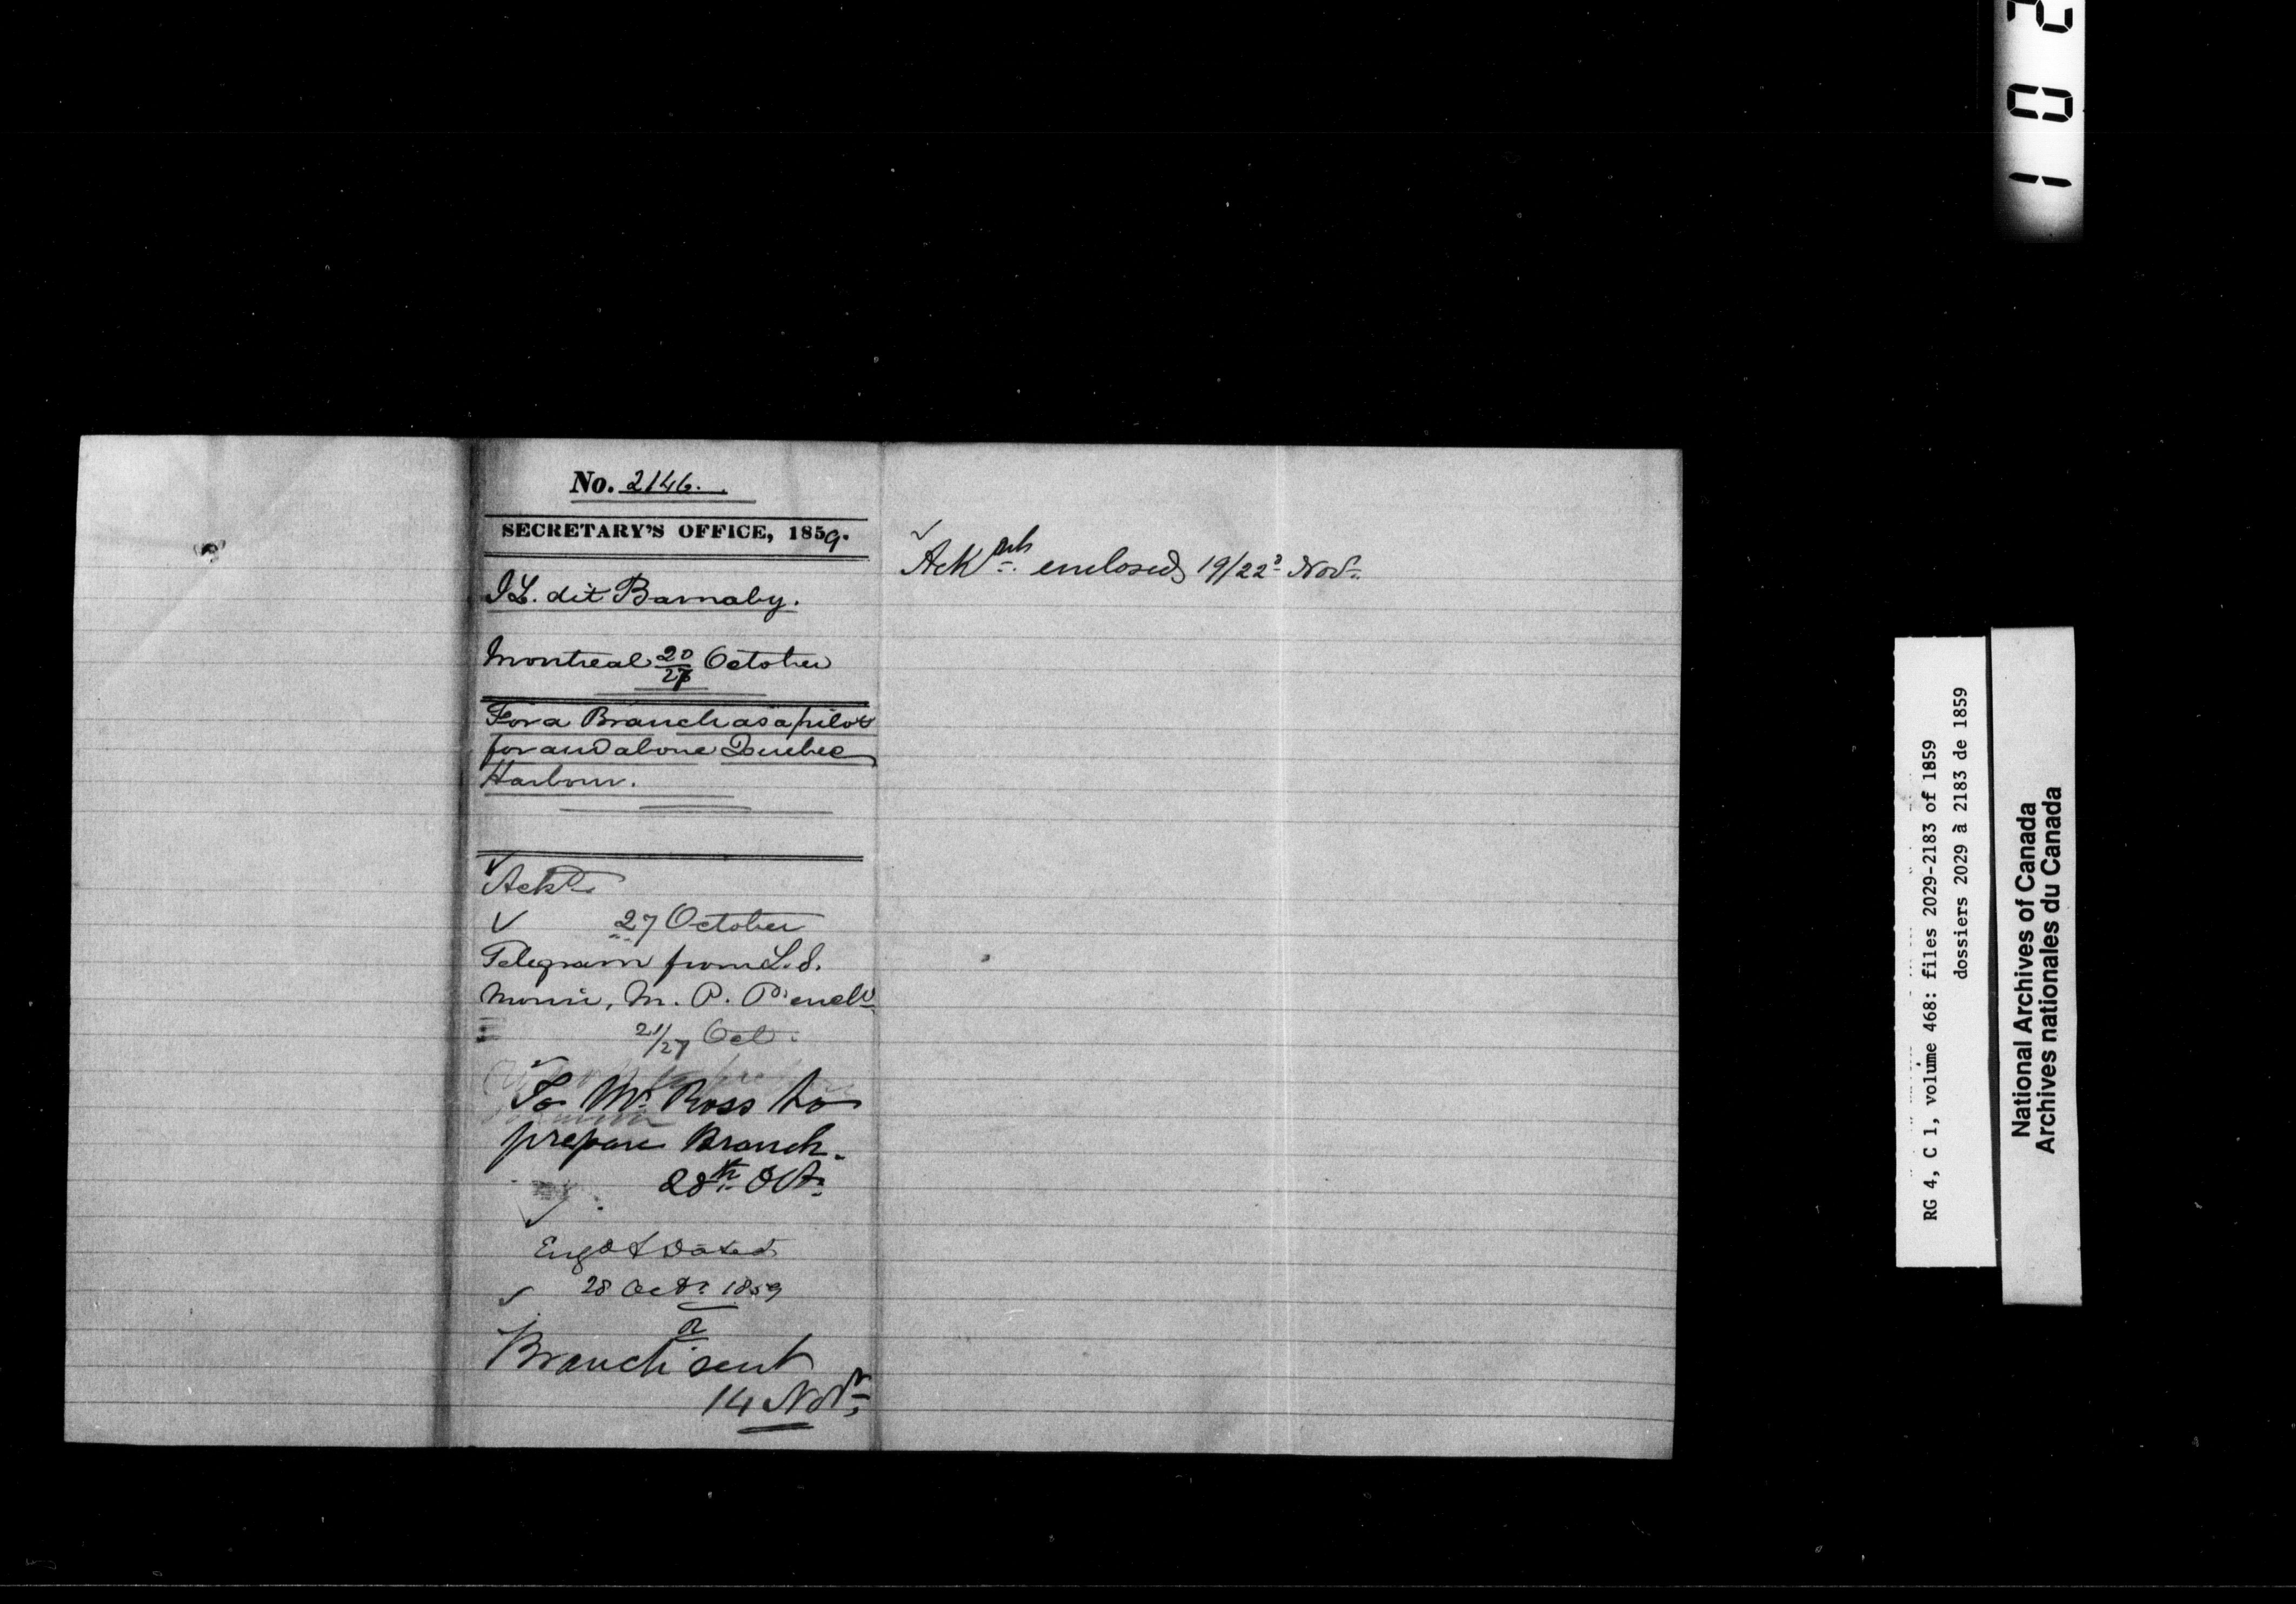 No. 2146.
SECRETARY'S OFFICE, 1859.
I L. dit Barnaby.
Montreal 20/27 October
For a Branch as a pilot
for and above Quebec
Harbour.
Ackd
27 October
Telegram from L. S.
Morin, M. P. P. encld
21/27 Oct.
To Mr. Ross to
prepare Branch.
28th Oct.
Engd & dated
28 Octr 1859
R
Branch sent
14 Novr.
Ackt. enclosed 19/22d Novr.
1 0 2
RG 4, C 1, volume 468: files 2029-2183 of 1859
dossiers 2029 à 2183 de 1859
National Archives of Canada
Archives nationales du Canada